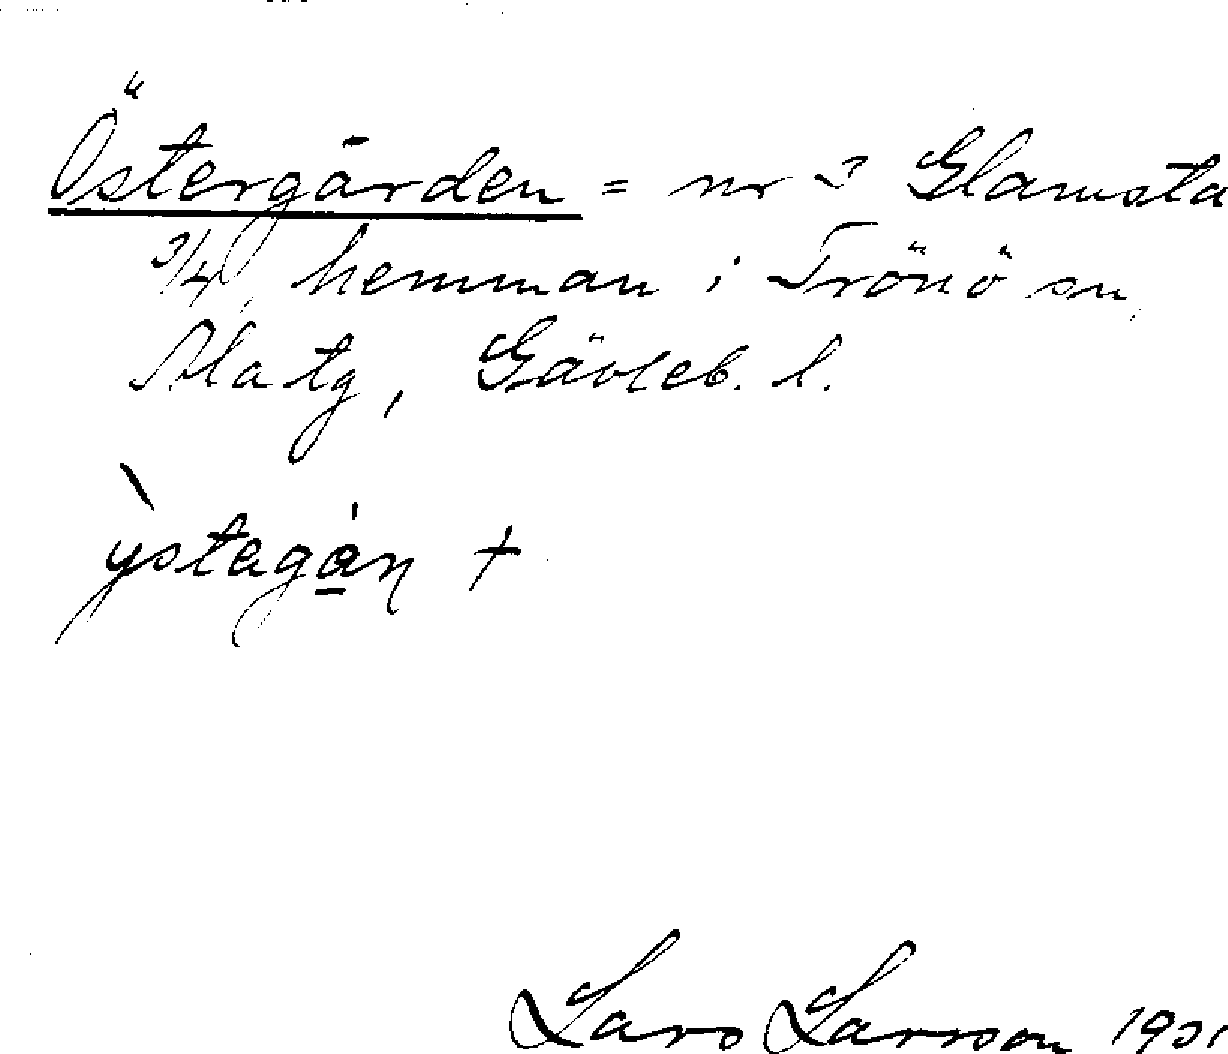 Östergården = nr 3 Glamsta
3/4 hemman i Trönö sn,
Ala tg, Gävleb. l.
ỳstagán +
Lars Larsson